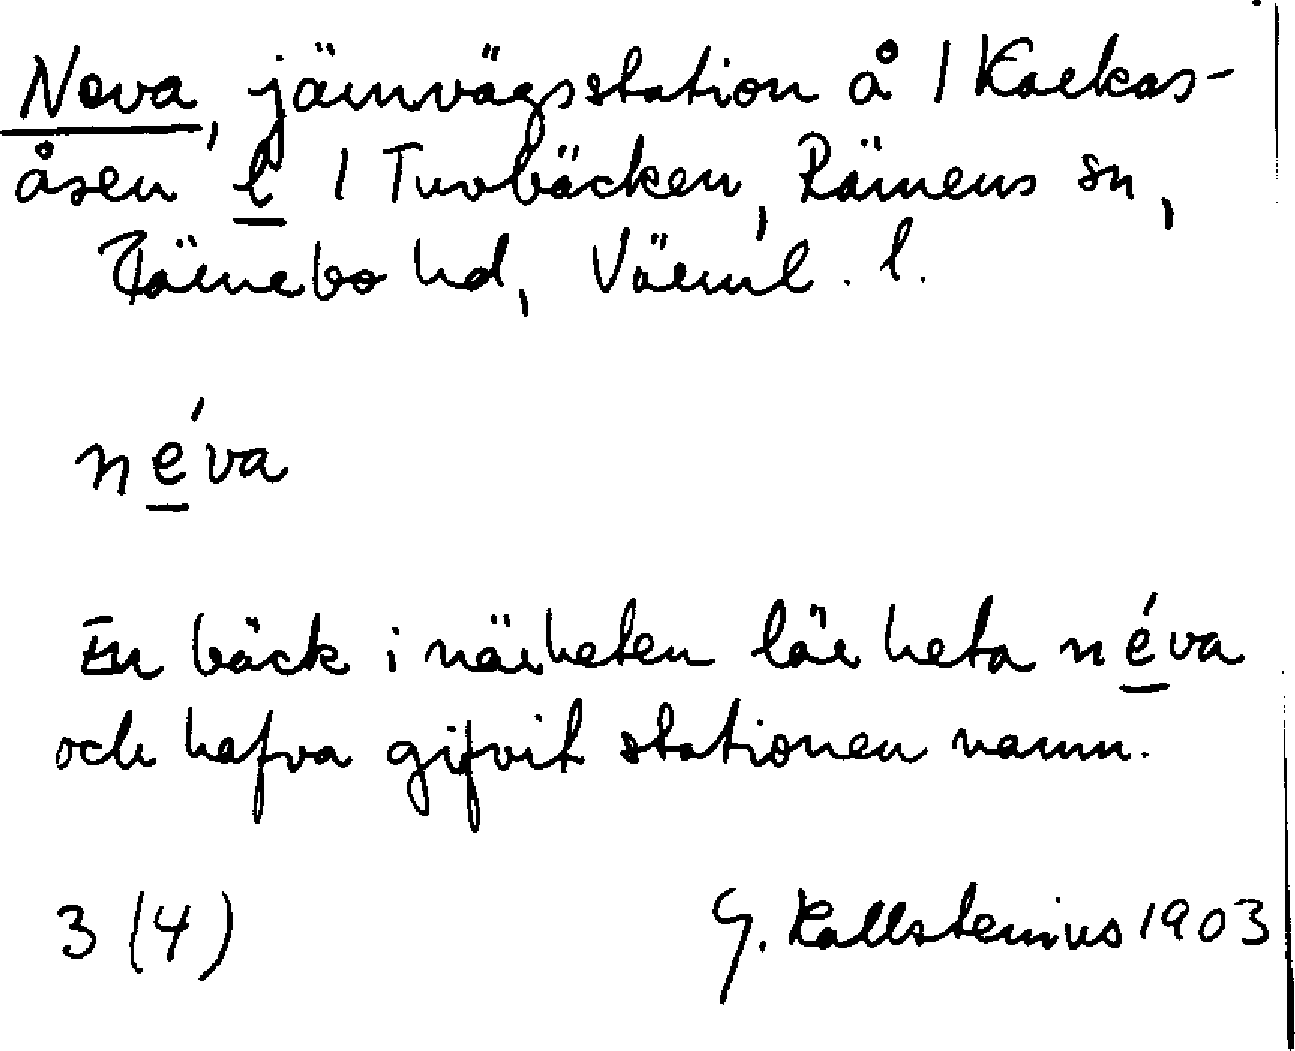 Neva, järnvägsstation å 1 Karkas-
åsen l 1 Tuvbäcken, Rämens sn,
Färnebo hd, Värml. l.
néva
En bäck i närheten lär heta néva
och hafva gifvit stationen namn.
3 (4)
G. Kallstenius 1903